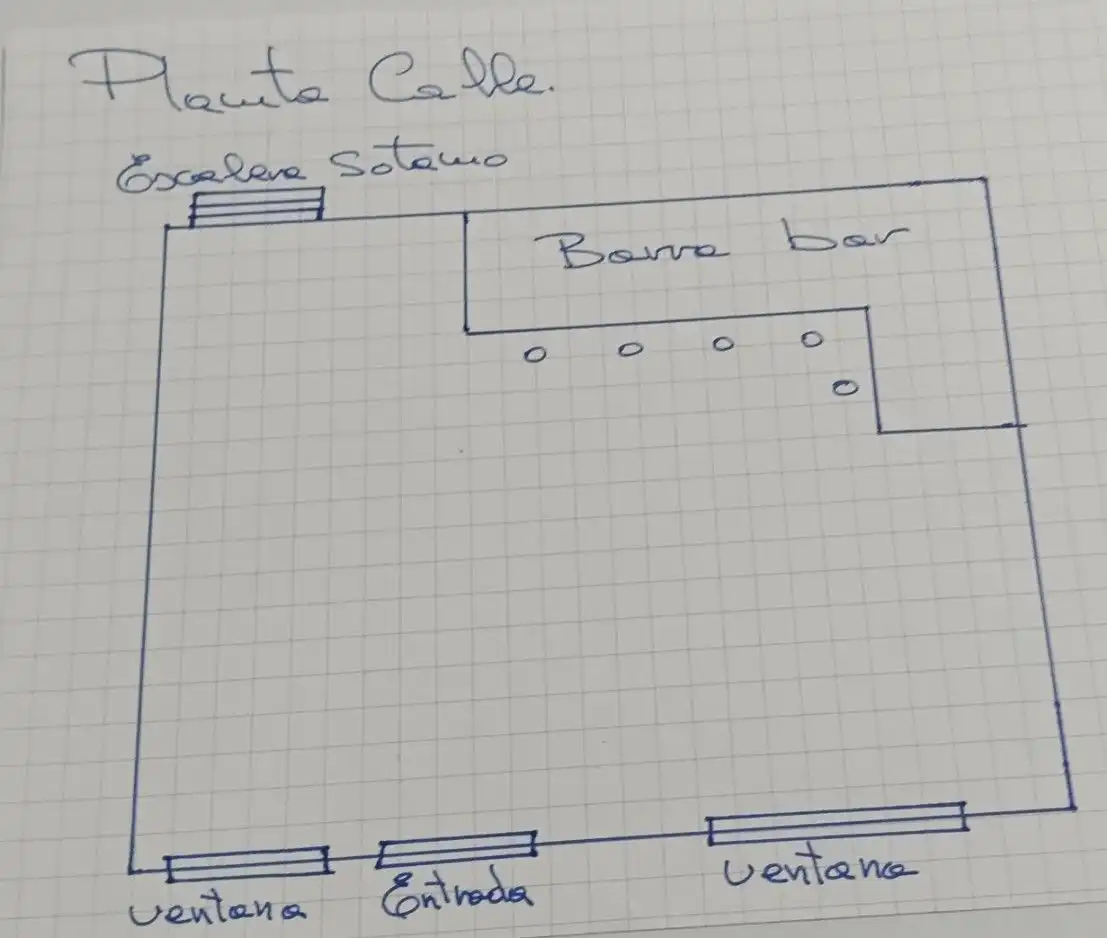 Planta Calle.
Escalera Sotano
Barra bar
ventana
Entrada
ventana